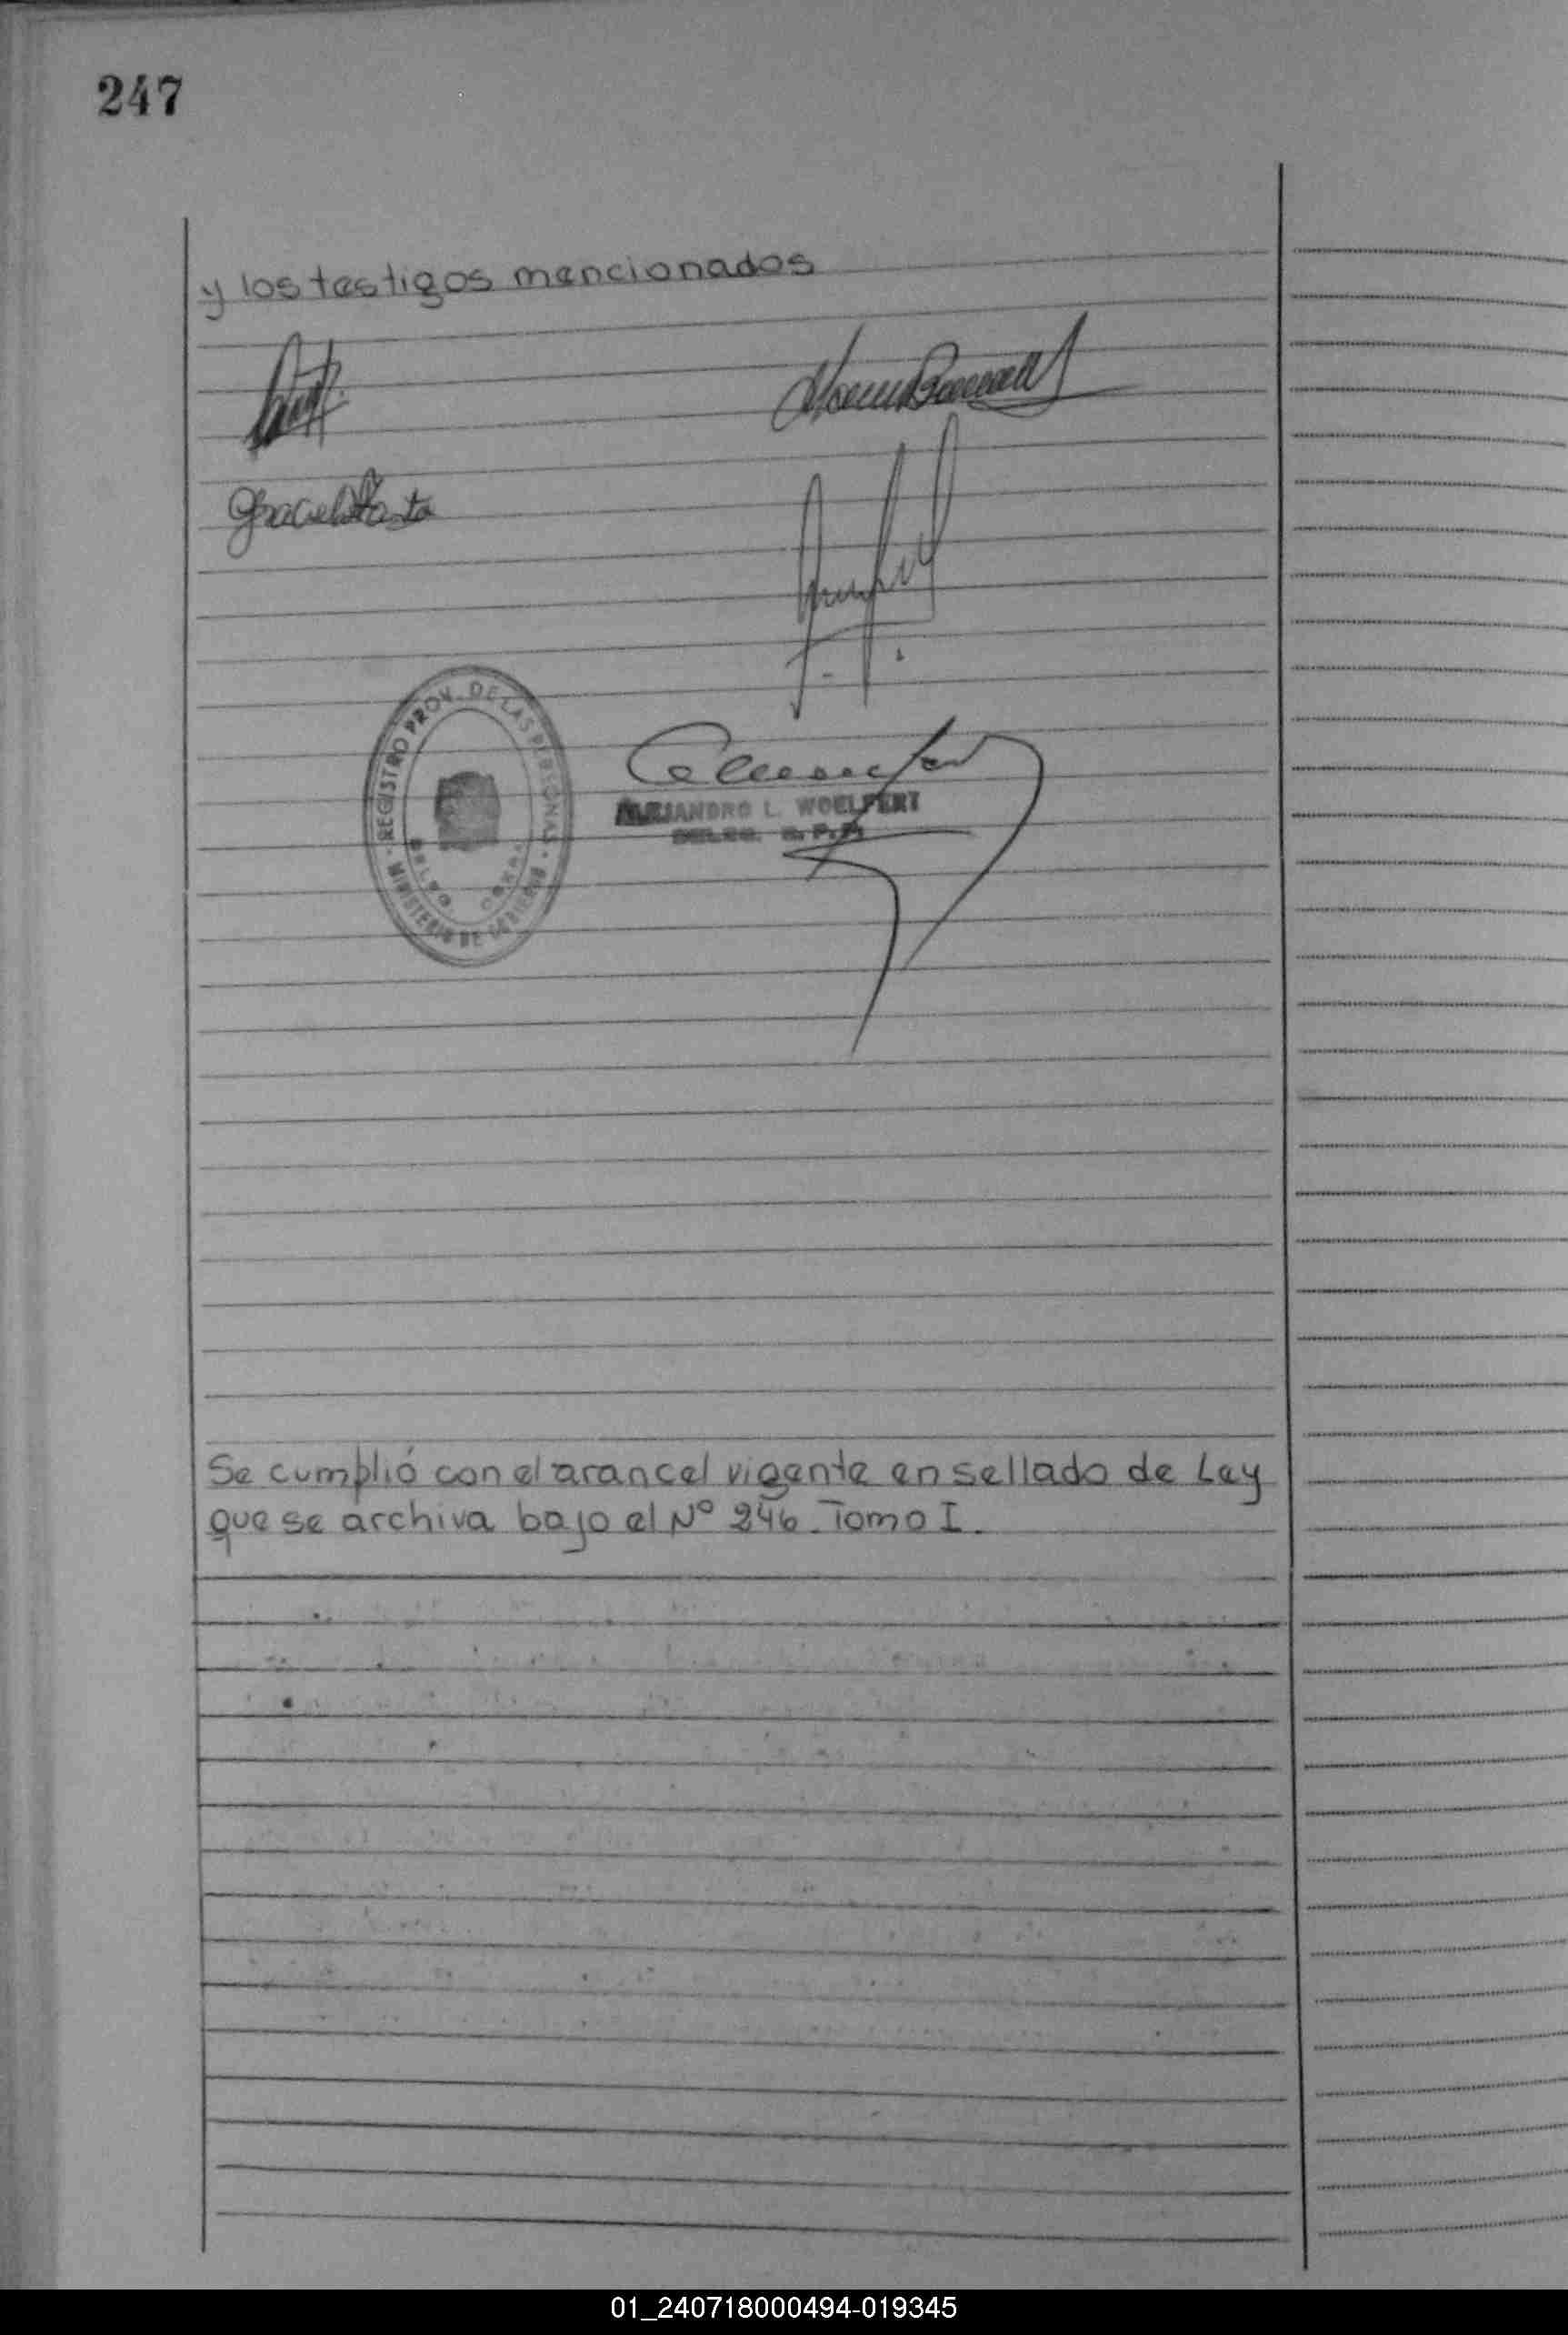 247
y los testigos mencionados
REGISTRO PROV. DE LAS PERSONAS
MINISTERIO DE GOBIERNO
ALEJANDRO L. WOELFERT
Se cumplió con el arancel vigente en sellado de Ley
que se archiva bajo el Nº 246. Tomo I.
01_240718000494-019345